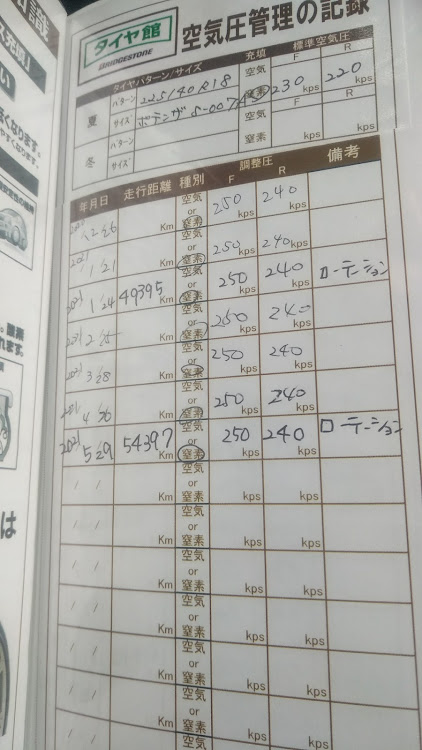 識
充填」
タイヤ館
BRIDGESTONE
空気圧管理の記録
タイヤパターン/サイズ
充填
標準空気圧
F
R
夏
パターン
225/40R18
サイズ
ポテンザ S-007A
空気
or
窒素
230
kps
220
kps
冬
パターン
サイズ
空気
or
窒素
kps
kps
年月日
走行距離
種別
調整圧
F
R
備考
12 26
Km
空気
or
窒素
250
kps
240
kps
2021
1/21
Km
空気
or
窒素
250
kps
240
kps
2021
1/24
49395
Km
空気
or
窒素
250
kps
240
kps
ローテーション
2021
2
Km
空気
or
窒素
250
kps
240
kps
2021
3/28
Km
空気
or
窒素
250
kps
240
kps
2021
4
Km
空気
or
窒素
250
kps
240
kps
2021
5/29
54397
Km
空気
or
窒素
250
kps
240
kps
ローテーション
/ /
Km
空気
or
窒素
kps
kps
/ /
Km
空気
or
窒素
kps
kps
/ /
Km
空気
or
窒素
kps
kps
/ /
Km
空気
or
窒素
kps
kps
/ /
Km
空気
or
窒素
kps
kps
/ /
Km
空気
or
窒素
kps
kps